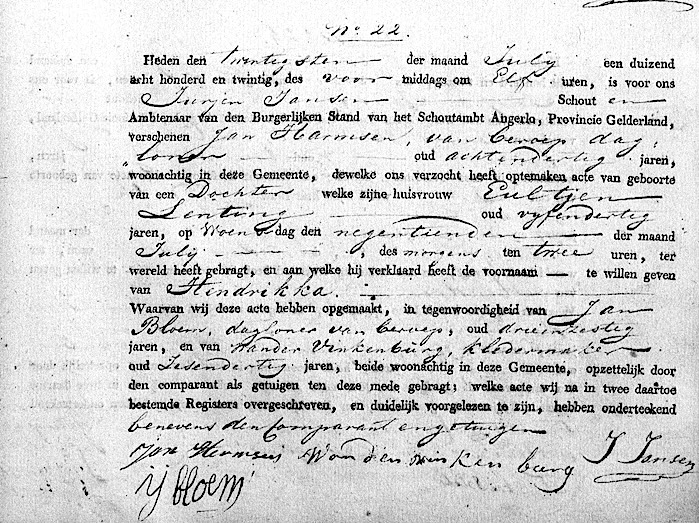 No. 22.
Heden den twintigsten der maand July een duizend
acht honderd en twintig, des voor middags om Elf uren, is voor ons
Jurjen Jansen Schout en
Ambtenaar van den Burgerlijken Stand van het Schoutambt Angerlo, Provincie Gelderland,
verschenen Jan Harmsen, van beroep dag
loner oud achtendertig jaren,
woonachtig in deze Gemeente, dewelke ons verzocht heeft optemaken acte van geboorte
van een Dochter welke zijne huisvrouw Eultjen
Lenting oud vyfendertig
jaren, op Woensdag den negentienden der maand
July , des morgens ten twee uren, ter
wereld heeft gebragt, en aan welke hij verklaard heeft de voornaam — te willen geven
van Hendrikka.
Waarvan wij deze acte hebben opgemaakt, in tegenwoordigheid van Jan
Bloem, dagloner van beroep, oud drieenzestig
jaren, en van Wander Vinkenburg, kledermaker
oud Sesendertig jaren, beide woonachtig in deze Gemeente, opzettelijk door
den comparant als getuigen ten deze mede gebragt; welke acte wij na in twee daartoe
bestemde Registers overgeschreven, en duidelijk voorgelezen te zijn, hebben onderteekend
benevens den Comparant en getuigen
Jan Hermsen Wander vinken burg J Jansen
ij bloem